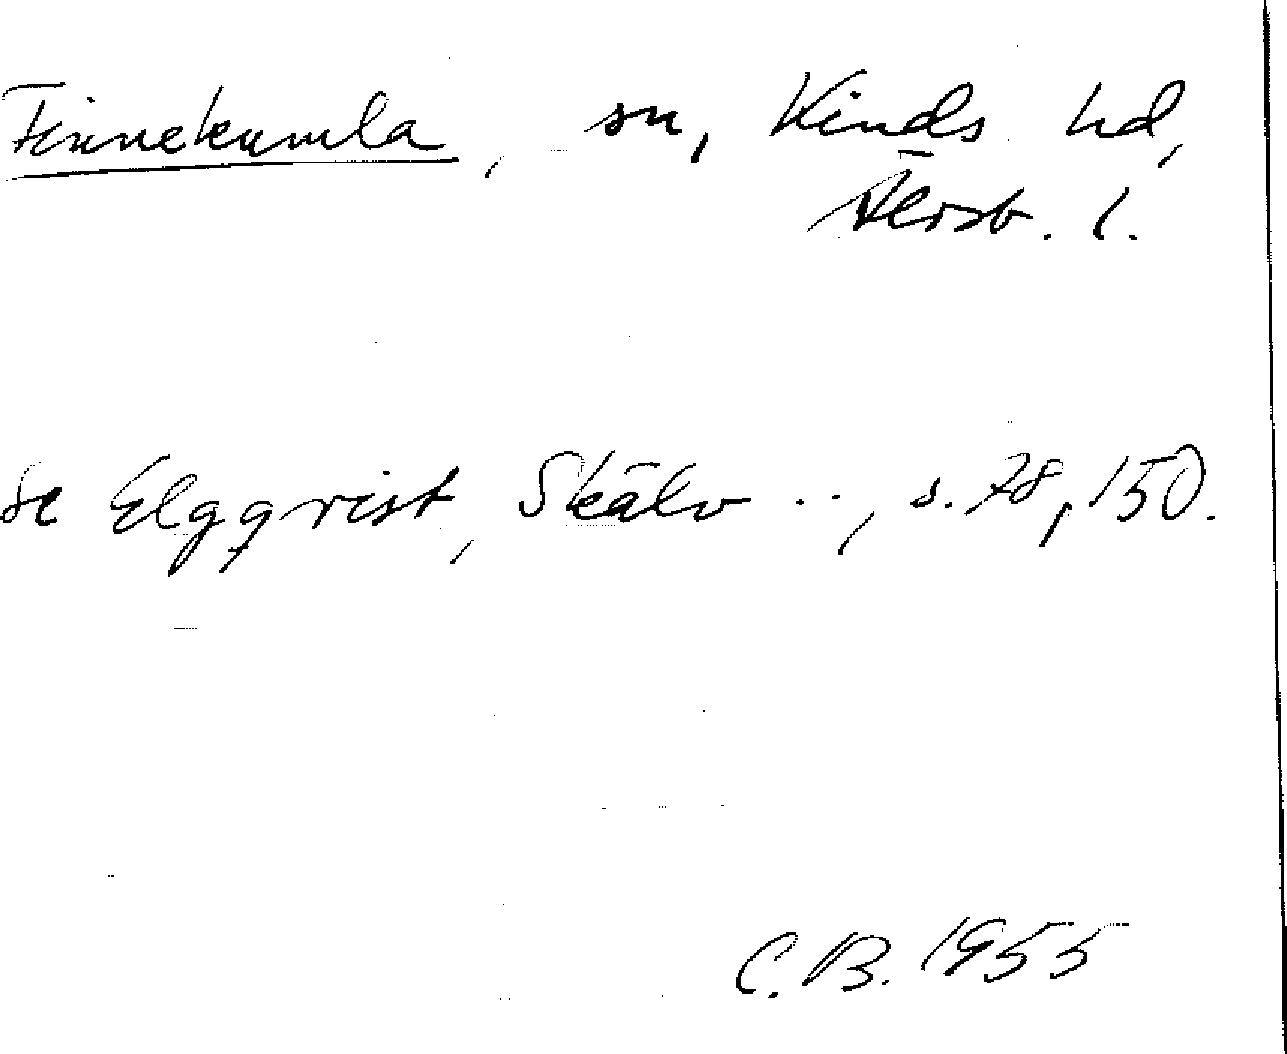 Finnekumla, sn, Kinds hd,
Älvsb. l.
Se Elgqvist, Skälv .., s. 78, 150.
C.B. 1955